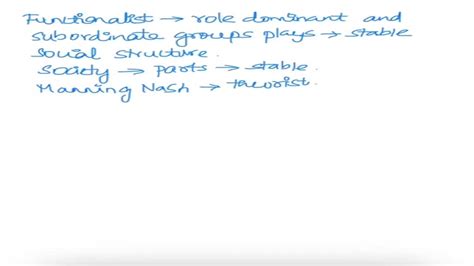 Functionalist → role dominant and
subordinate groups plays → stable
social structure.
Society → parts → stable.
Manning Nash → theorist.